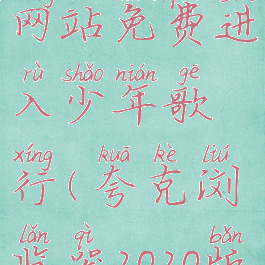 网站免费进
rù shǎo nián gē
入少年歌
xíng kuā kè liú
行(夸克浏
lǎn qì bǎn
览器2020版